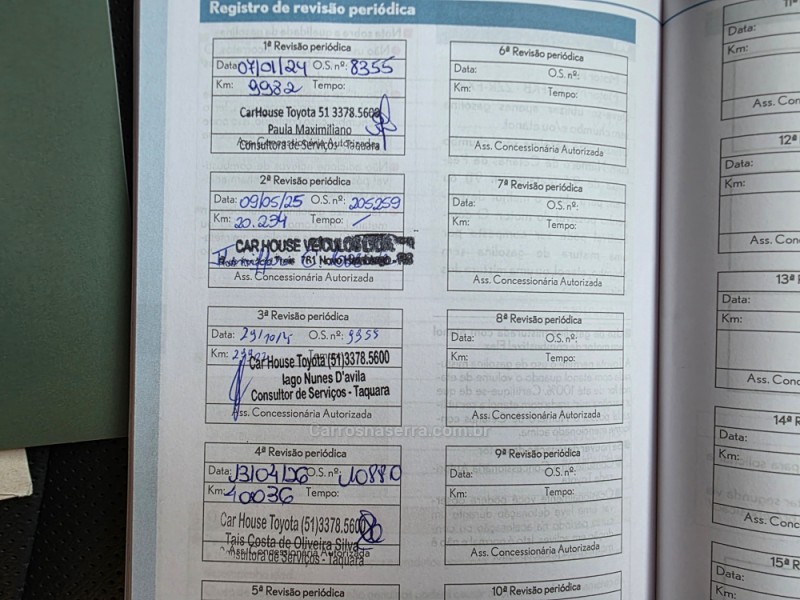 Registro de revisão periódica
1ª Revisão periódica
Data: 07/01/24 O.S. nº: 8355
Km: 9982 Tempo:
CarHouse Toyota 51 3378.5600
Paula Maximiliano
Ass. Concessionária Autorizada
Consultora de Serviços - Taquara
2ª Revisão periódica
Data: 09/05/25 O.S. nº: 205259
Km: 20.234 Tempo: /
CAR HOUSE VEÍCULOS LTDA
781 Novo Hamburgo - RS
Ass. Concessionária Autorizada
3ª Revisão periódica
Data: O.S. nº: 9355
Km:
Car House Toyota (51)3378.5600
Iago Nunes D'avila
Consultor de Serviços - Taquara
Ass. Concessionária Autorizada
4ª Revisão periódica
Data: 13/04/26 O.S. nº: 10880
Km: 40036 Tempo:
Car House Toyota (51)3378.5600
Tais Costa de Oliveira Silva
Ass. Concessionária Autorizada
Consultora de Serviços - Taquara
5ª Revisão periódica
6ª Revisão periódica
Data: O.S. nº:
Km: Tempo:
Ass. Concessionária Autorizada
7ª Revisão periódica
Data: O.S. nº:
Km: Tempo:
Ass. Concessionária Autorizada
8ª Revisão periódica
Data: O.S. nº:
Km: Tempo:
Ass. Concessionária Autorizada
9ª Revisão periódica
Data: O.S. nº:
Km: Tempo:
Ass. Concessionária Autorizada
10ª Revisão periódica
11ª
Data:
Km:
Ass. Con
12ª
Data:
Km:
Ass. Co
13ª
Data:
Km:
Ass. Con
14ª
Data:
Km:
Ass. Conc
15ª R
Data:
Km:
Carrosnaserra.com.br